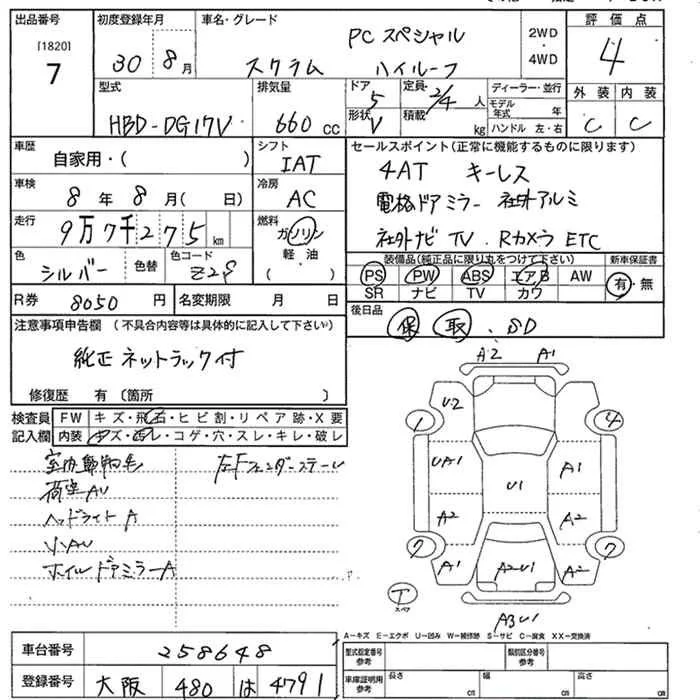 出品番号 初度登録年月 車名・グレード 評価点
[1820]
7
30 8月
PC スペシャル
スクラム ハイルーフ
2WD
4WD
4
型式 排気量 ドア 定員 ディーラー・並行 外装 内装
HBD-DG17V 660 cc 5 2/4 人
モデル年式 年
形状 V 積載 kg ハンドル 左・右
C C
車歴 シフト セールスポイント(正常に機能するものに限ります)
自家用・( ) IAT
4AT キーレス
車検 8年 8月( 日) 冷房 AC
電格ドアミラー 社外アルミ
走行 9万7千275km 燃料 ガソリン
軽油
( )
社外ナビ TV Rカメラ ETC
色 シルバー 色替 色コード Z2S
装備品(純正品に限り丸をつけて下さい) 新車保証書
PS PW ABS エアB AW 有・無
SR ナビ TV カワ
R券 8050円 名変期限 月 日
後日品 保 取 . SD
注意事項申告欄 (不具合内容等は具体的に記入して下さい)
純正ネットラック付
修復歴 有 〔箇所 〕
検査員 FW キズ・飛石・ヒビ割・リペア跡・X要
記入欄 内装 キズ・汚レ・コゲ・穴・スレ・キレ・破レ
左Fフェンダーステー
ヘッドライトA
ホイルドアミラーA
A2 A1
U2
1 4
UA1 U1 A1
A2 A2
7 7
A1 A2U1 A2
T
スペア
A3U1
A-キズ E-エクボ U-凹み W-補修跡 S-サビ C-腐食 XX-交換済
車台番号 258648
登録番号 大阪 480 は 4791
型式指定番号 参考 類別区分番号 参考
車庫証明用 参考 長さ cm 幅 cm 高さ cm